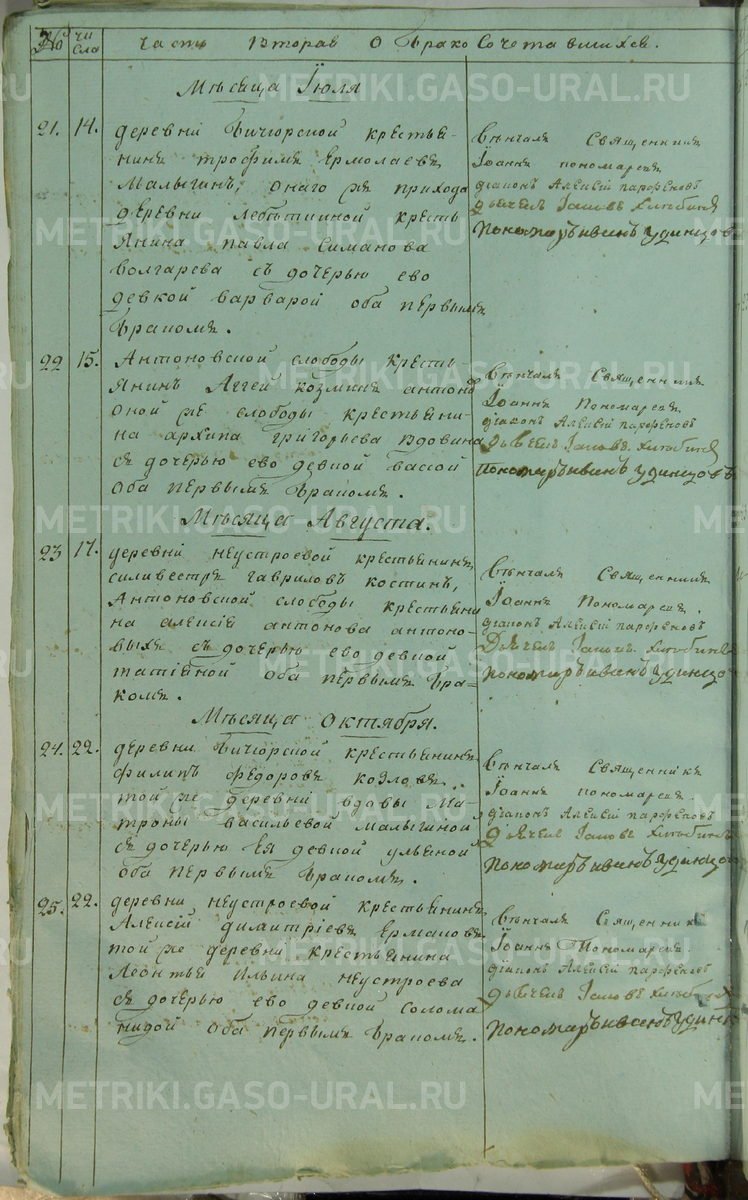 № числа Часть Вторая О Бракосочетавшихся.
Мѣсяца Іюля
21. 14. деревни Бичюрской крестья-
нинъ трофимъ Ермолаевъ
Малыгинъ, онаго же прихода
деревни лебѣткиной кресть
янина павла Симанова
болгарева съ дочерью ево
девкой варварой оба первымъ
бракомъ.
Вѣнчалъ Священникъ
Іоаннъ пономаревъ
діаконъ Алексій парфеновъ
дьячекъ Іаковъ
пономарь иванъ удинцовъ
22 15. Антоновской слободы кресть-
янинъ Аггей козминъ антоно
оной же слободы крестьяни-
на архипа григорьева вдовина
съ дочерью ево девкой вассой
оба первымъ бракомъ.
Вѣнчалъ Священникъ
Іоаннъ Пономаревъ
діаконъ Алексій парфеновъ
дьячекъ Іаковъ
пономарь иванъ удинцовъ
Мѣсяца Августа.
23 17. деревни неустроевой крестьянинъ
силивестръ гавриловъ костинъ,
Антоновской слободы крестьяни
на алексія антонова антоно-
выхъ съ дочерью ево девкой
татіяной оба первымъ бра-
комъ.
Вѣнчалъ Священникъ
Іоаннъ Пономаревъ.
діаконъ Алексій парфеновъ
Дьячекъ Іаковъ
пономарь иванъ удинцо
Мѣсяца октября.
24. 22. деревни Бичюрской крестьянинъ
филипъ федоровъ козловъ
той же деревни вдовы Ма-
троны васильевой малыгиной
съ дочерью Ея девкой ульяной
оба первымъ бракомъ.
Вѣнчалъ Священникъ
Іоаннъ пономаревъ.
діаконъ Алексій парфеновъ
Дьячекъ Іаковъ
пономарь иванъ удинцо
25. 22. деревни неустроевой крестьянинъ
Алексій димитріевъ Ермаковъ
той же деревни крестьянина
Леонтья Ильина неустроева
съ дочерью ево девкой солома
нидой оба первымъ бракомъ.
Вѣнчалъ Священникъ
Іоаннъ Пономаревъ.
діаконъ Алексій парфеновъ
дьячекъ Іаковъ
пономарь иванъ удинцо
METRIKI.GASO-URAL.RU